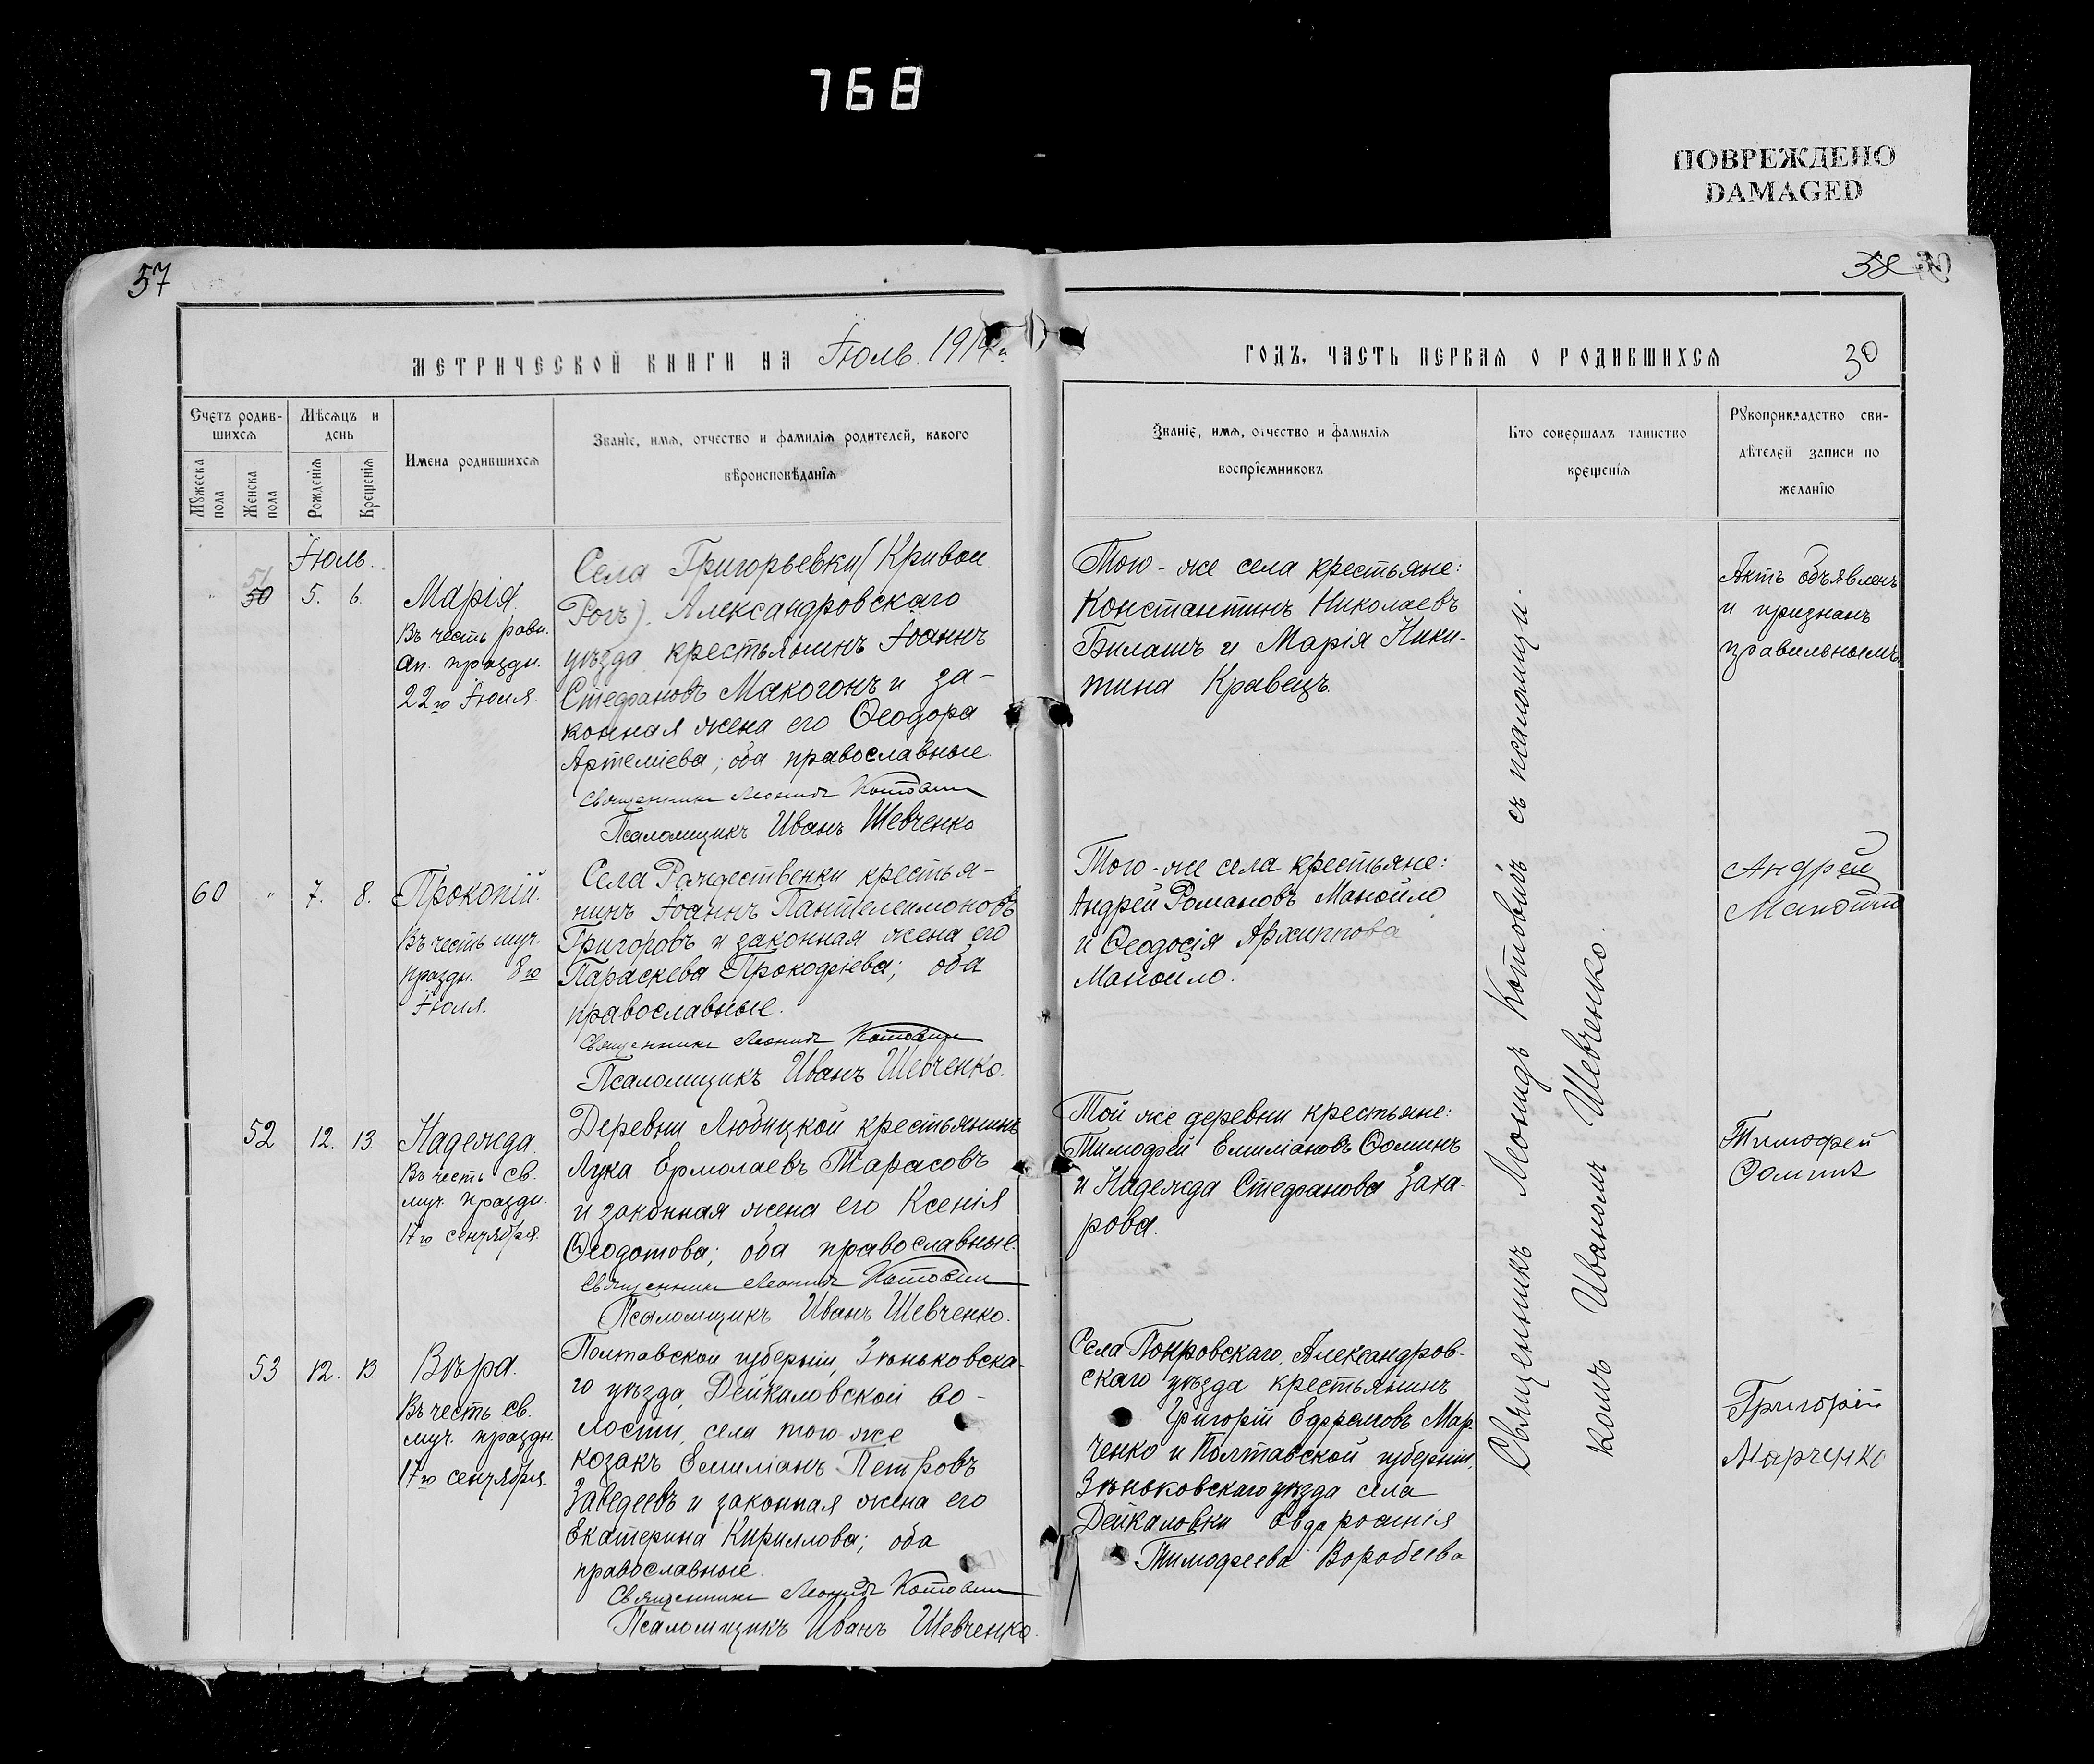 768
ПОВРЕЖДЕНО
DAMAGED
57
58
МЕТРИЧЕСКОЙ КНИГИ НА Іюль 1914 г.
Счетъ родив-
шихся
Мужеска
пола
Женска
пола
Мѣсяцъ и
день
Рожденія
Крещенія
Имена родившихся
Званіе, имя, отчество и фамилія родителей, какого
вѣроисповѣданія
Іюль.
" 51
50
5. 6.
Марія.
Въ честь равн.
ап. праздн.
22го Іюля.
Села Григорьевки (Кривой
Рогъ). Александровскаго
уѣзда крестьянинъ Іоаннъ
Стефановъ Макогонъ и за-
конная жена его Ѳеодора
Артеміева; оба православные.
Священникъ Леонидъ Котовичъ
Псаломщикъ Иванъ Шевченко
60 " 7. 8.
Прокопій.
Въ честь муч.
праздн. 8го
Іюля.
Села Рождественки крестья-
нинъ Іоаннъ Пантелеимоновъ
Григоровъ и законная жена его
Параскева Прокофіева; оба
православные.
Священникъ Леонидъ Котовичъ
Псаломщикъ Иванъ Шевченко.
52 12. 13.
Надежда.
Въ честь св.
муч. праздн.
17го сентября.
Деревни Любицкой крестьянинъ
Лука Ермолаевъ Тарасовъ
и законная жена его Ксенія
Ѳеодотова; оба православные.
Священникъ Леонидъ Котовичъ
Псаломщикъ Иванъ Шевченко.
53 12. 13.
Вѣра.
Въ честь св.
муч. праздн.
17го сентября.
Полтавской губерніи, Зѣньковска-
го уѣзда, Дейкаловской во-
лости, села того-же
козакъ Емиліанъ Петровъ
Заведеевъ и законная жена его
Екатерина Кириллова; оба
православные.
Священникъ Леонидъ Котовичъ
Псаломщикъ Иванъ Шевченко.
ГОДЪ, ЧАСТЬ ПЕРВАЯ О РОДИВШИХСЯ
30
Званіе, имя, отчество и фамилія
воспріемниковъ
Кто совершалъ таинство
крещенія
Рукоприкладство сви-
дѣтелей записи по
желанію
Того-же села крестьяне:
Константинъ Николаевъ
Билашъ и Марія Ники-
тина Кравецъ.
Актъ объявленъ
и признанъ
правильнымъ
Того-же села крестьяне:
Андрей Романовъ Манойло
и Ѳеодосія Архиппова
Манойло.
Андрей
Манойло
Той же деревни крестьяне:
Тимофей Емиліановъ Ѳоминъ
и Надежда Стефанова Заха-
рова.
Тимофей
Ѳоминъ
Села Покровскаго, Александров-
скаго уѣзда крестьянинъ
Григорій Ефремовъ Мар-
ченко и Полтавской губерніи,
Зѣньковскаго уѣзда села
Дейкаловки Евфросинія
Тимофеева Воробеева
Григорій
Марченко
Священникъ Леонидъ Котовичъ съ псаломщи-
комъ Иваномъ Шевченко.